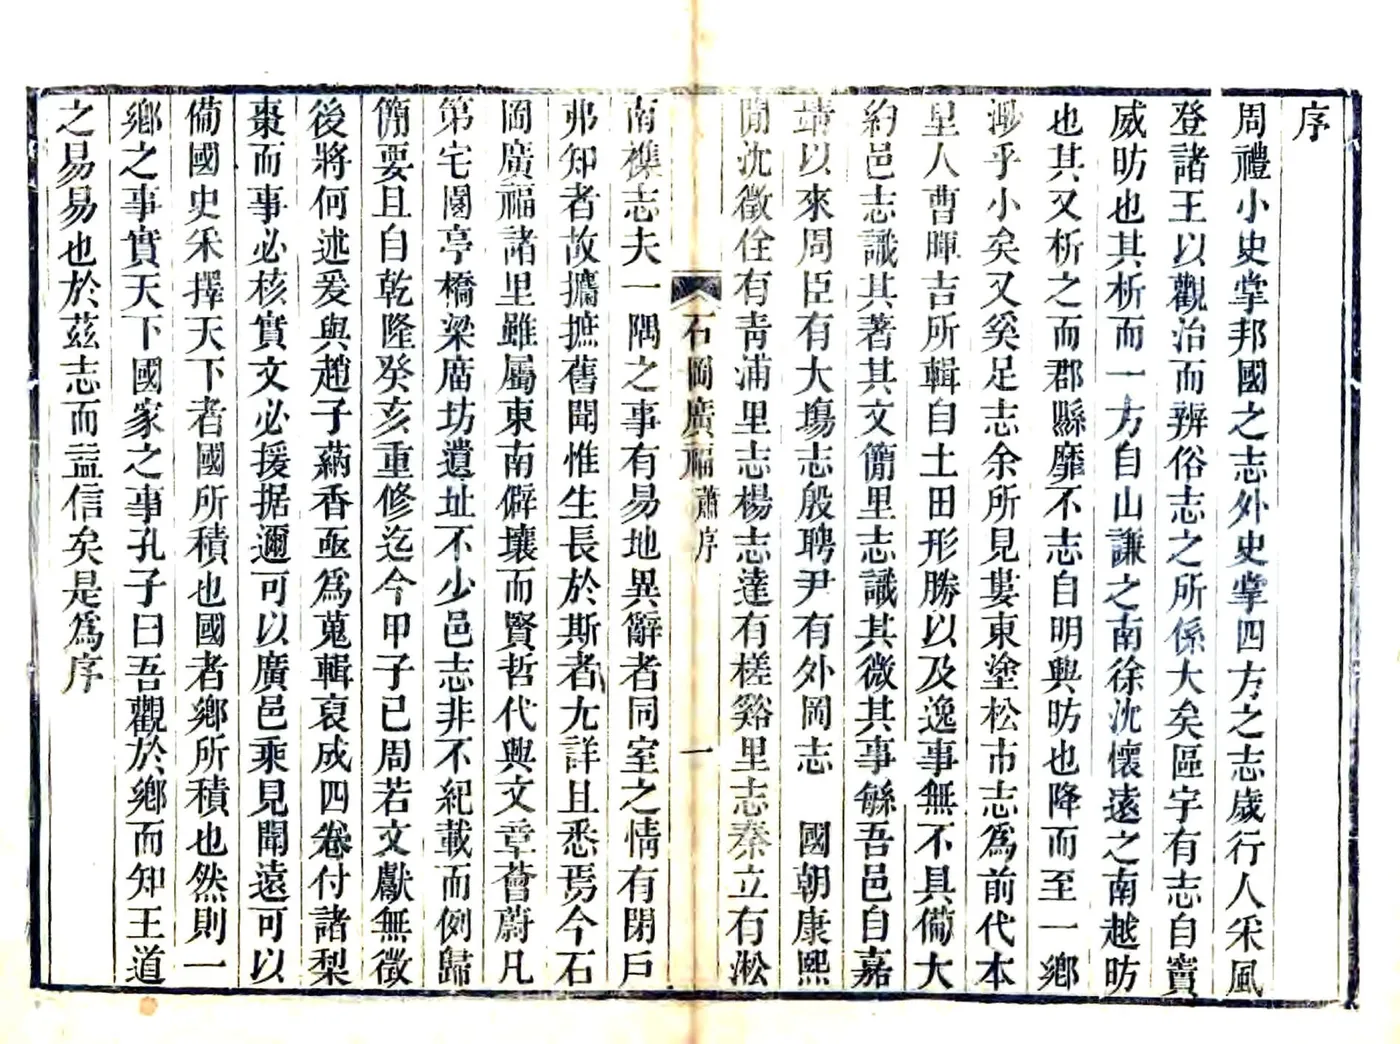 序
周禮小史掌邦國之志外史掌四方之志歲行人采風
登諸王以觀治而辨俗志之所係大矣區宇有志自竇
威昉也其析而一方自山謙之南徐沈懷遠之南越昉
也其又析之而郡縣靡不志自明興昉也降而至一鄉
渺乎小矣又奚足志余所見婁東塗松市志為前代本
里人曹暉吉所輯自土田形勝以及逸事無不具僃大
約邑志識其著其文簡里志識其微其事緐吾邑自嘉
靖以來周臣有大塲志殷聘尹有外岡志 國朝康熙
間沈徵佺有青浦里志楊志達有槎谿里志秦立有淞
石岡廣福 蕭序 一
南樵志夫一隅之事有易地異辭者同室之情有閉戶
弗知者故攟摭舊聞惟生長於斯者尤詳且悉焉今石
岡廣福諸里雖屬東南僻壤而賢哲代興文章薈蔚凡
第宅園亭橋梁庿坊遺址不少邑志非不紀載而例歸
簡要且自乾隆癸亥重修迄今甲子已周若文獻無徵
後將何述爰與趙子蒳香亟為蒐輯裒成四卷付諸梨
棗而事必核實文必援据邇可以廣邑乘見聞遠可以
僃國史釆擇天下者國所積也國者鄉所積也然則一
鄉之事實天下國家之事孔子曰吾觀於鄉而知王道
之易易也於茲志而益信矣是為序